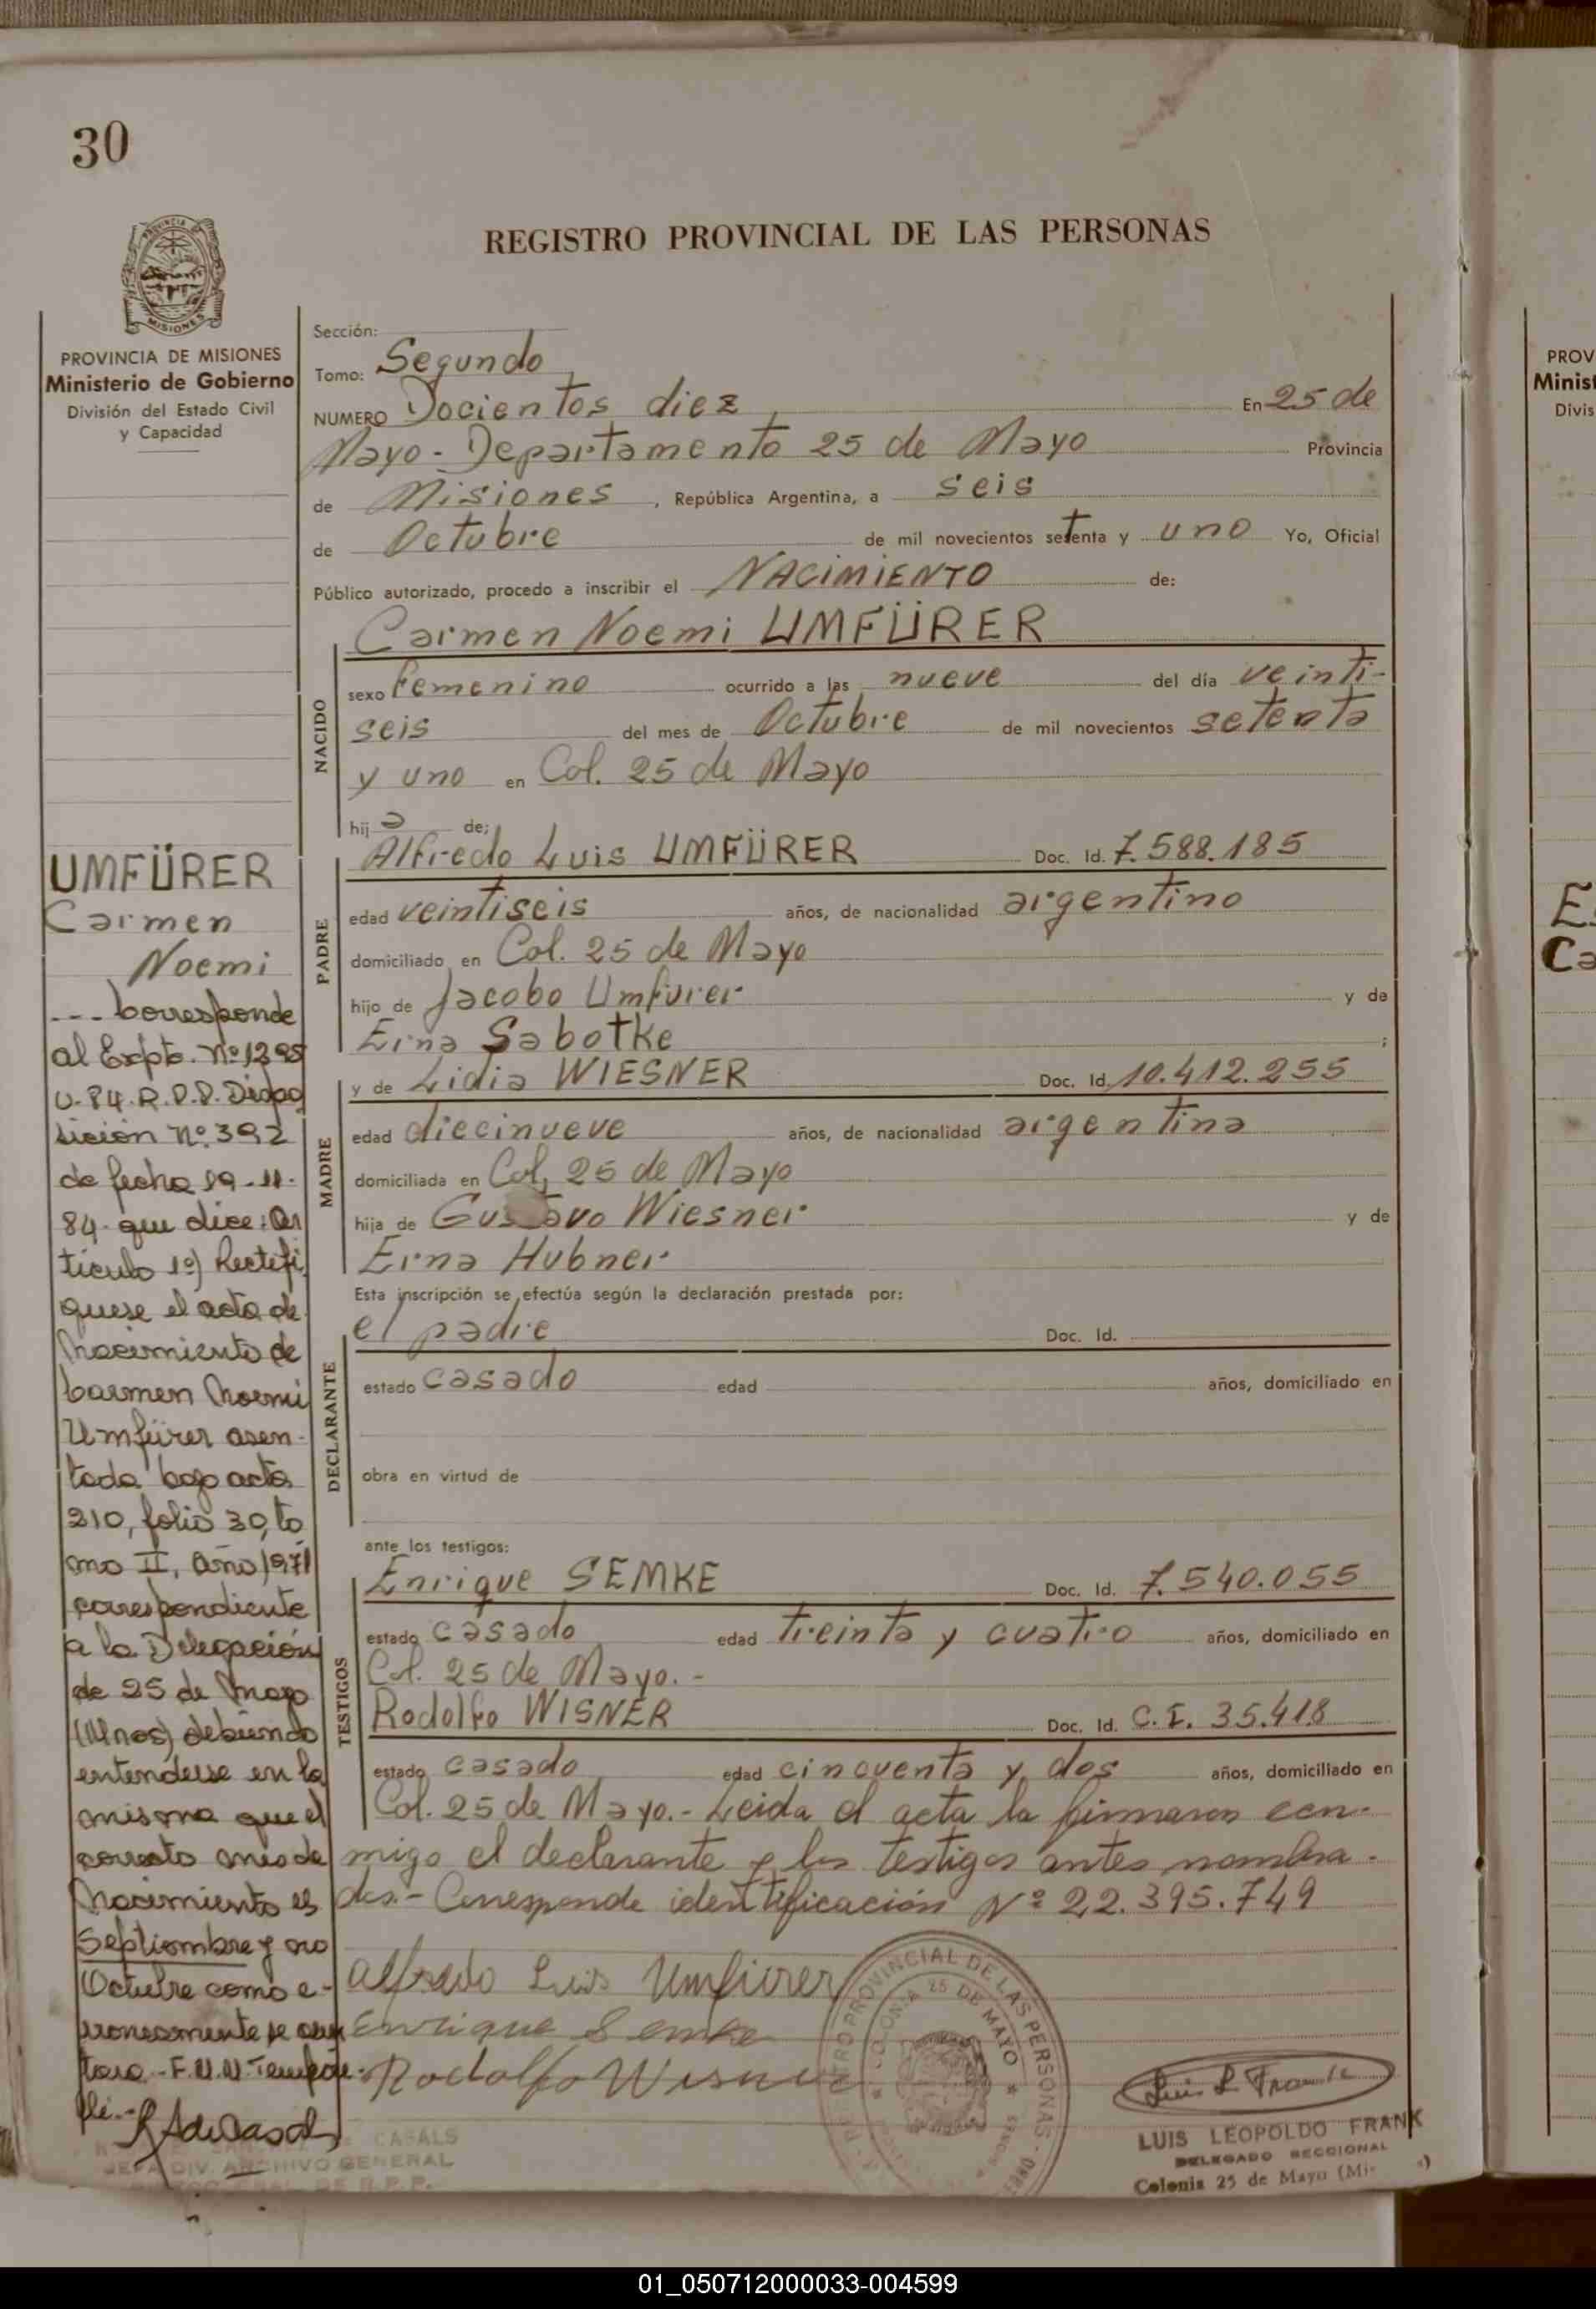 30
REGISTRO PROVINCIAL DE LAS PERSONAS
PROVINCIA
MISIONES
PROVINCIA DE MISIONES
Ministerio de Gobierno
División del Estado Civil
y Capacidad
Sección:
Tomo: Segundo
NUMERO Docientos diez En 25 de
Mayo - Departamento 25 de Mayo Provincia
de Misiones , República Argentina, a seis
de Octubre de mil novecientos setenta y uno Yo, Oficial
Público autorizado, procedo a inscribir el NACIMIENTO de:
NACIDO
Carmen Noemi UMFÜRER
sexo femenino ocurrido a las nueve del día veinti-
seis del mes de Octubre de mil novecientos setenta
y uno en Col. 25 de Mayo
hij a de;
PADRE
Alfredo Luis UMFÜRER Doc. Id. 7.588.185
edad veintiseis años, de nacionalidad argentino
domiciliado en Col. 25 de Mayo
hijo de Jacobo Umfürer y de
Erna Sabotke ;
MADRE
y de Lidia WIESNER Doc. Id. 10.412.255
edad diecinueve años, de nacionalidad argentina
domiciliada en Col, 25 de Mayo
hija de Gustavo Wiesner y de
Erna Hubner
Esta inscripción se efectúa según la declaración prestada por:
DECLARANTE
el padre Doc. Id.
estado casado edad años, domiciliado en
obra en virtud de
ante los testigos:
TESTIGOS
Enrique SEMKE Doc. Id. 7.540.055
estado casado edad treinta y cuatro años, domiciliado en
Col. 25 de Mayo. -
Rodolfo WISNER Doc. Id. C.I. 35.418
estado casado edad cincuenta y dos años, domiciliado en
Col. 25 de Mayo. - Leida el acta la firmaron con-
migo el declarante y los testigos antes nombra-
dos.- Corresponde identificación Nº 22.395.749
Alfredo Luis Umfürer
Enrique Semke
Rodolfo Wisner
REGISTRO PROVINCIAL DE LAS PERSONAS
COLONIA 25 DE MAYO
MISIONES
Luis L Frank
LUIS LEOPOLDO FRANK
DELEGADO SECCIONAL
Colonia 25 de Mayo
UMFÜRER
Carmen
Noemi
--- Corresponde
al Expte. Nº 1295
U-84. R.P.P. Dispo
sición Nº 392
de fecha 19-11-
84 que dice: Ar
ticulo 1º) Rectifi
quese el acta de
Nacimiento de
Carmen Noemi
Umfürer asen-
tada bajo acta
210, folio 30, to
mo II, Año 1971
correspondiente
a la Delegación
de 25 de Mayo
(Mnes) debiendo
entenderse en la
misma que el
correcto mes de
Nacimiento es
Septiembre y no
Octubre como e-
rroneamente se
CASALS
JEFA DIV. ARCHIVO GENERAL
DE R.P.P.
PROV
Minist
Divis
E
Ca
01_050712000033-004599